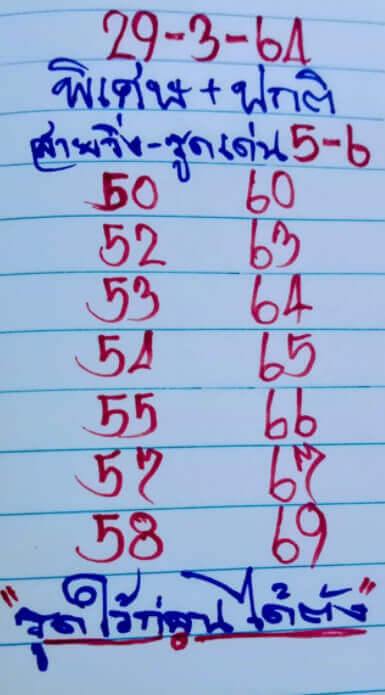 29-3-64
พิเศษ + ปกติ
สายวิ่ง-รูดเด่น 5-6
50 60
52 63
53 64
54 65
55 66
57 67
58 69
"รูดไว้ก่อนได้ตัง"